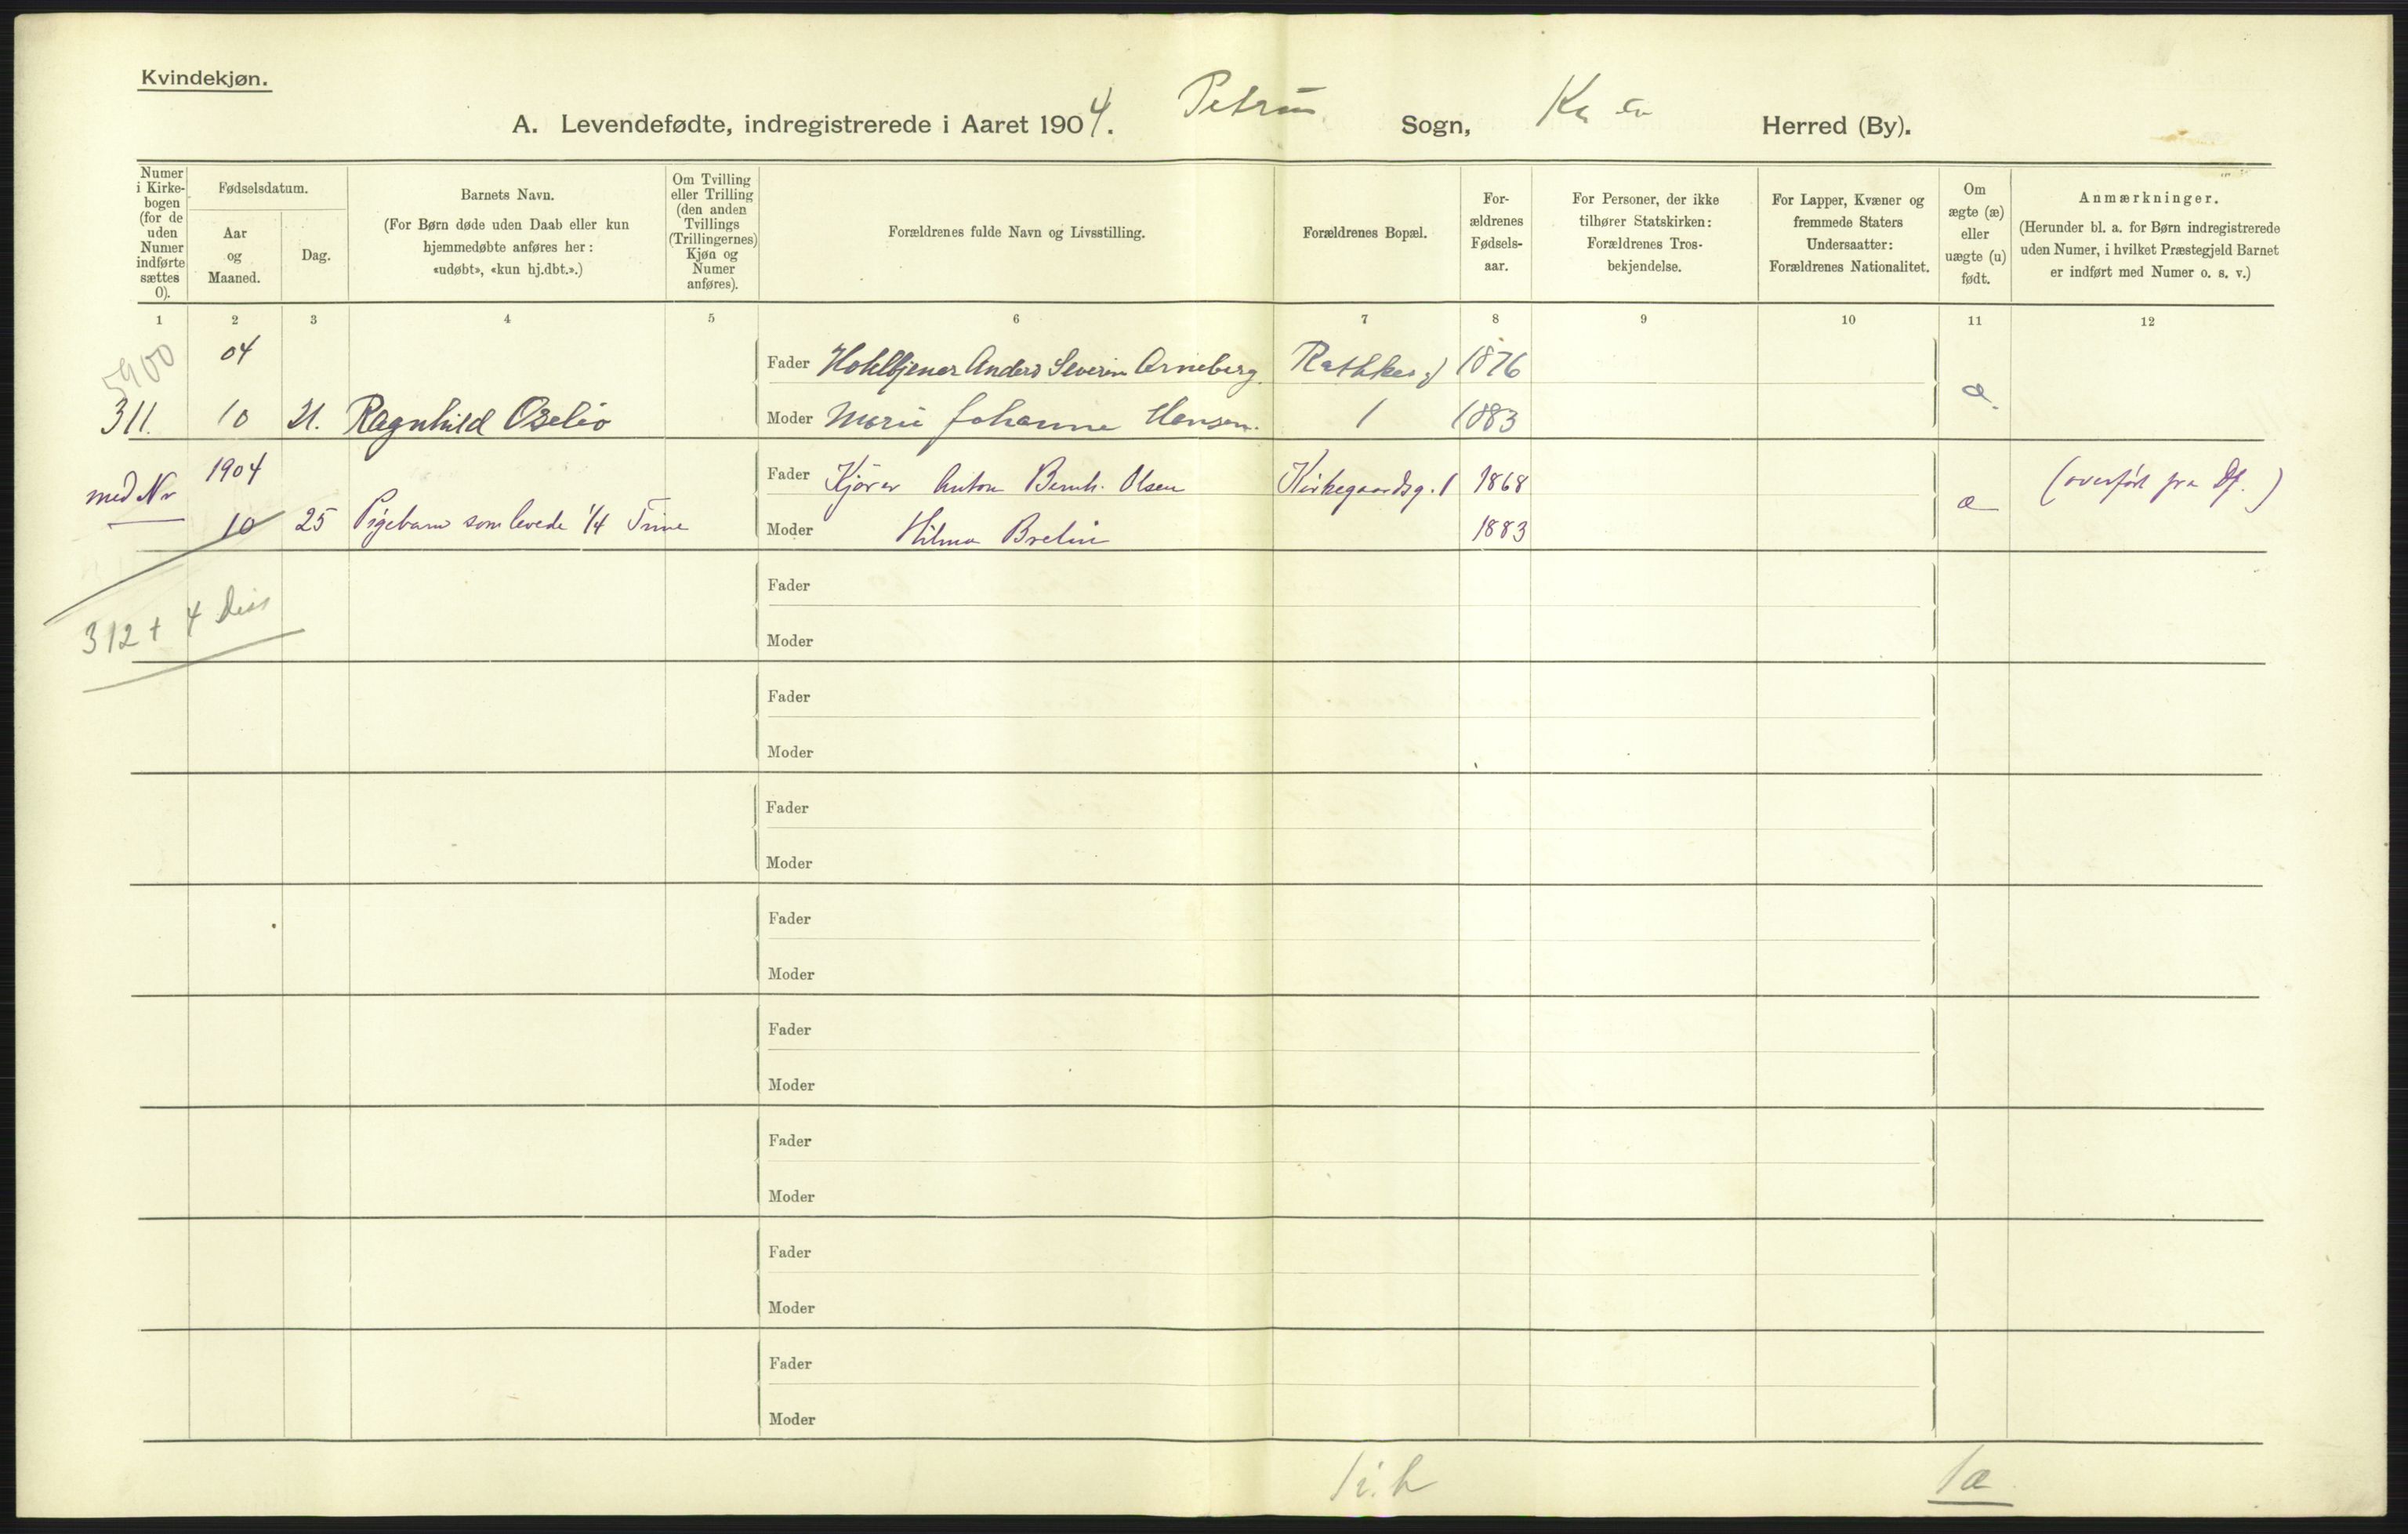 Kvindekjøn.
A. Levendefødte, indregistrerede i Aaret 1904. Petrus Sogn, Herred (By).
Numer i Kirkebogen (for de uden Numer indførte sættes 0).
Fødselsdatum.
Aar og Maaned.
Dag.
Barnets Navn.
(For Børn døde uden Daab eller kun
hjemmedøbte anføres her:
«udøbt», «kun hj.dbt.».)
Om Tvilling
eller Trilling
(den anden
Tvillings
(Trillingernes)
Kjøn og
Numer
anføres).
Forældrenes fulde Navn og Livsstilling.
Forældrenes Bopæl.
For-
ældrenes
Fødsels-
aar.
For Personer, der ikke
tilhører Statskirken:
Forældrenes Tros-
bekjendelse.
For Lapper, Kvæner og
fremmede Staters
Undersaatter:
Forældrenes Nationalitet.
Om
ægte (æ)
eller
uægte (u)
født.
Anmærkninger.
(Herunder bl. a. for Børn indregistrerede
uden Numer, i hvilket Præstegjeld Barnet
er indført med Numer o. s. v.)
1 2 3 4 5 6 7 8 9 10 11 12
5900
04 Fader Hoteltjener Anders Severin Arneberg Rathkesg 1876
æ.
311. 10 21. Ragnhild Oselio Moder Marie Johanne Hansen. 1 1883
1904 Fader Kjører Anton Bernh. Olsen Kirkegaardsg. 1 1868 (overført fra Df.)
med Nr æ
10 25 Pigebarn som levede 1/4 Time Moder Hilma Brelin 1883
Fader
312 + 4
Moder
Fader
Moder
Fader
Moder
Fader
Moder
Fader
Moder
Fader
Moder
Fader
Moder
Fader
Moder
1 i. h 1æ